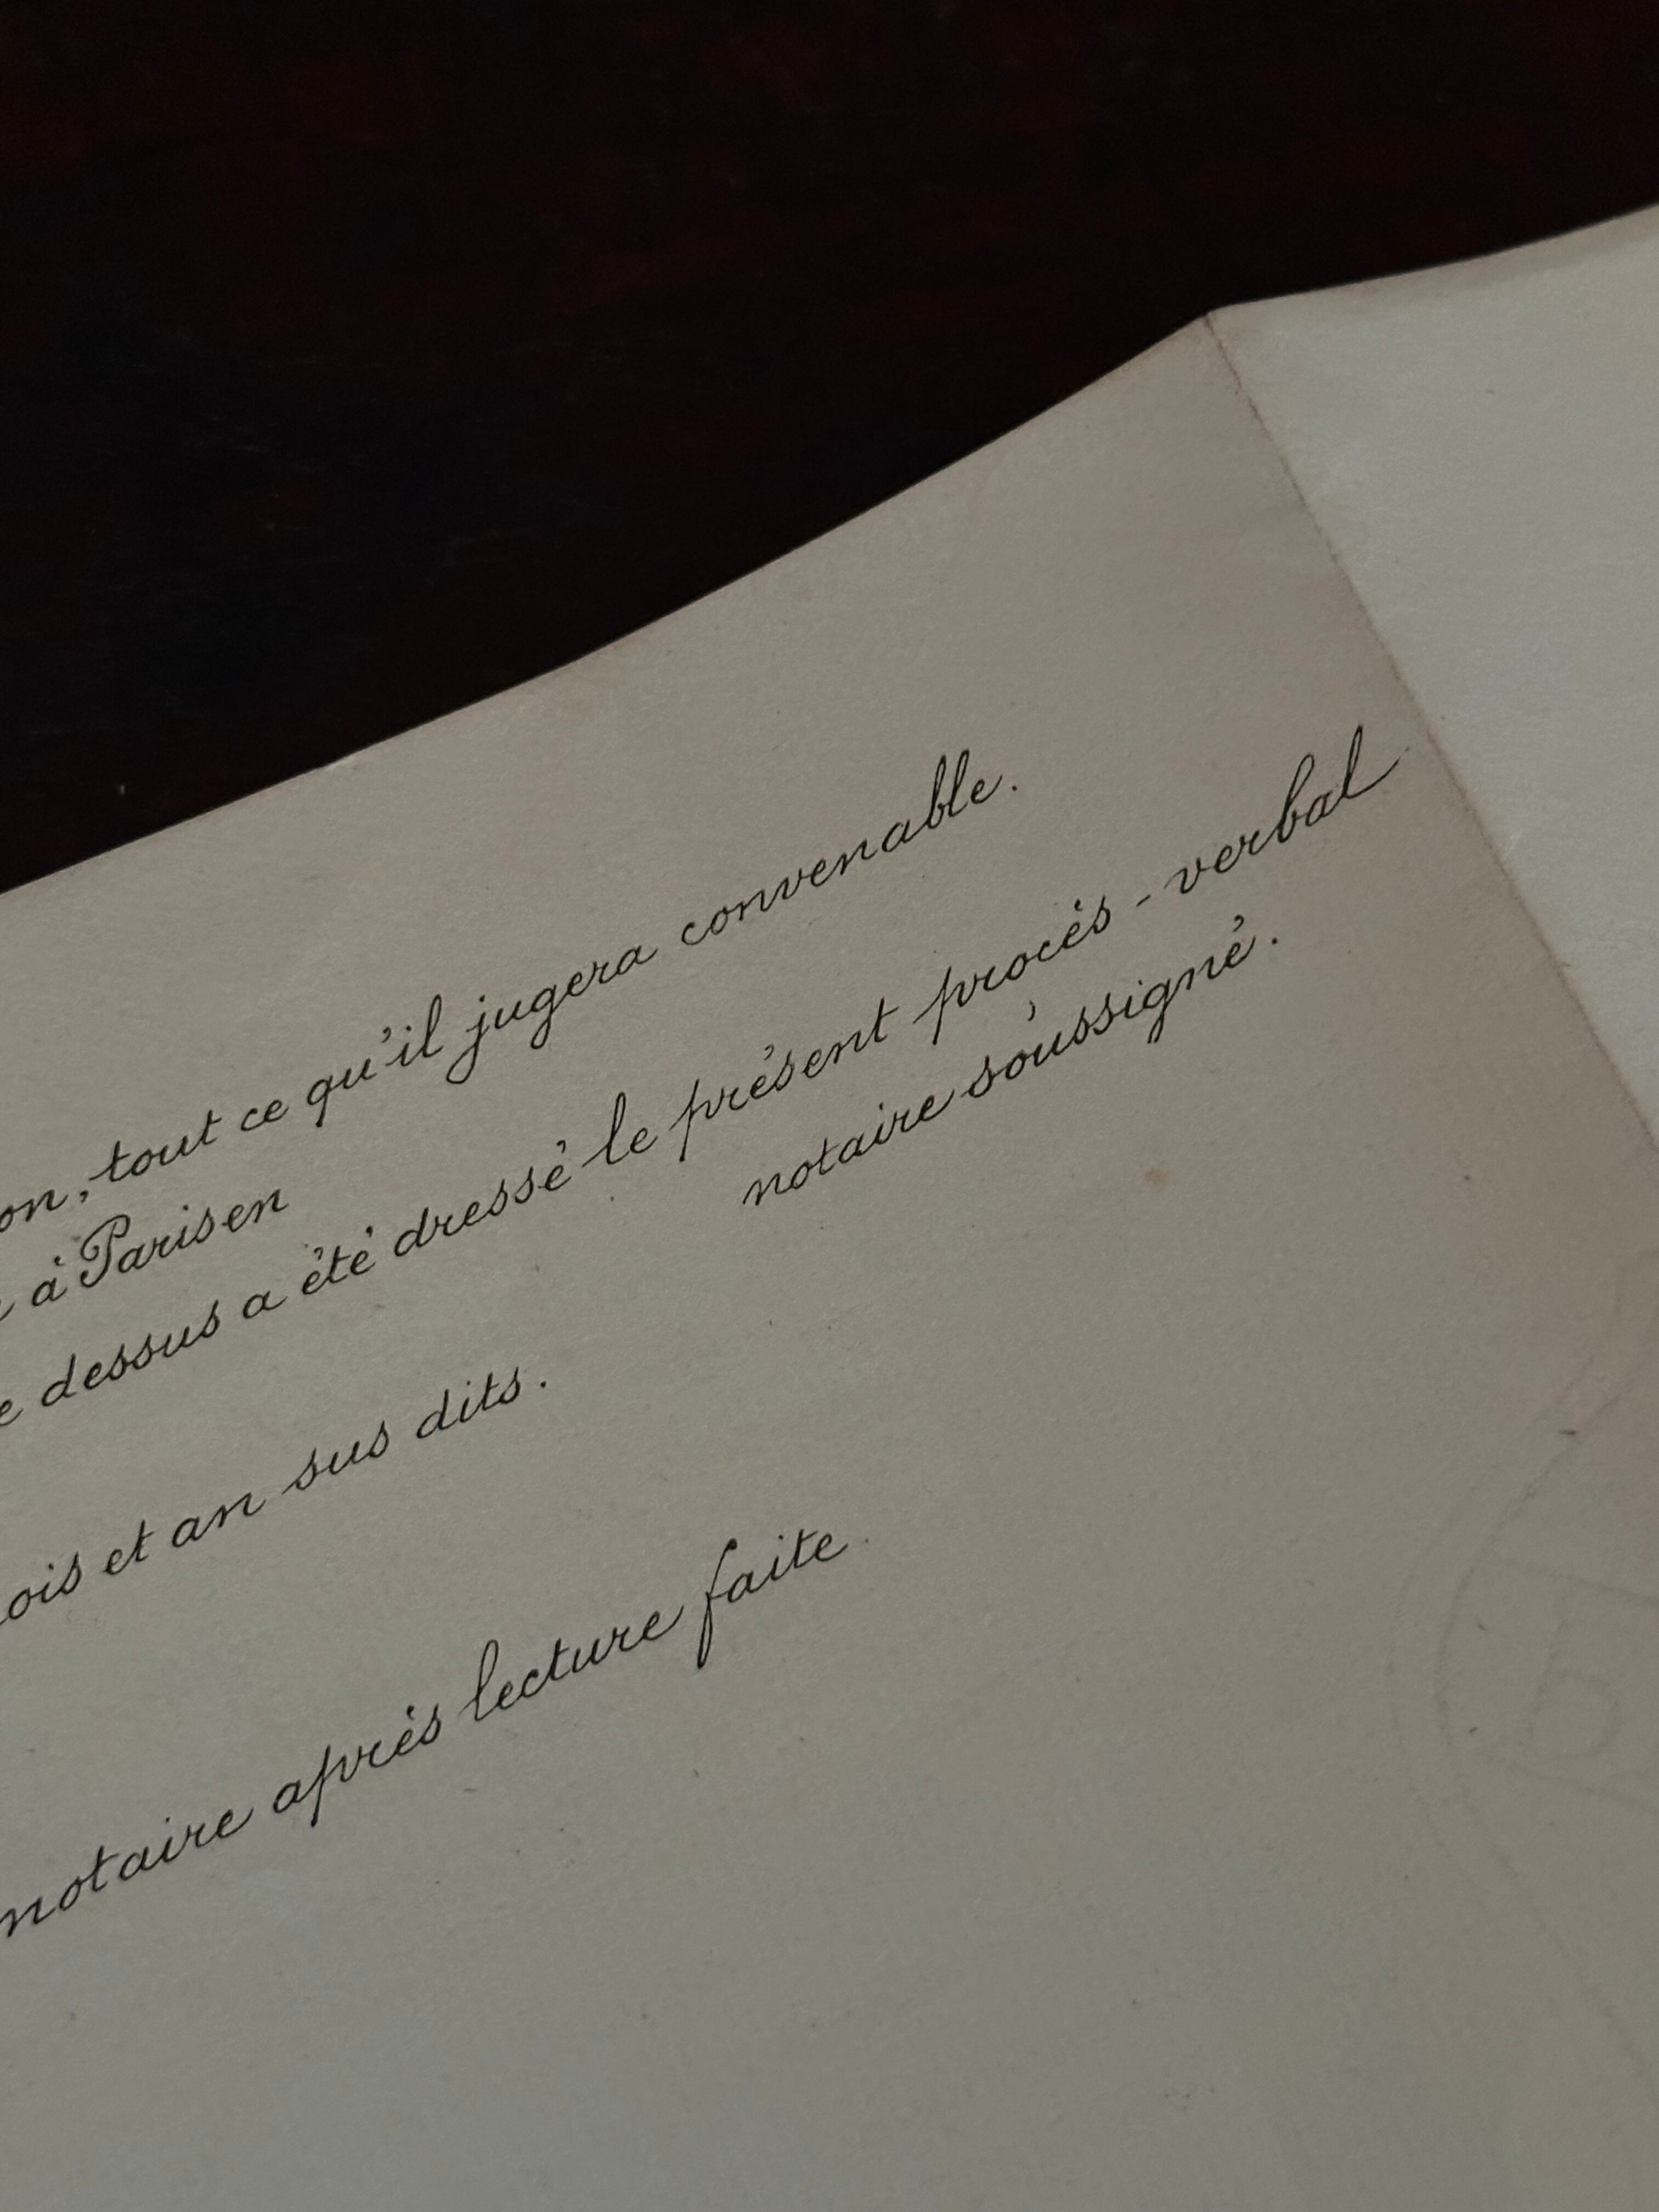 on, tout ce qu'il jugera convenable.
à Paris en
dessus a été dressé le présent procès-verbal
notaire soussigné.
ois et an sus dits.
notaire après lecture faite